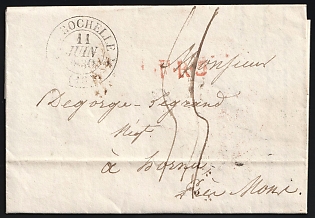 ROCHELLE
11
JUIN
Monsieur
Degorge-Legrand
Negt.
à hornu
Près Mons